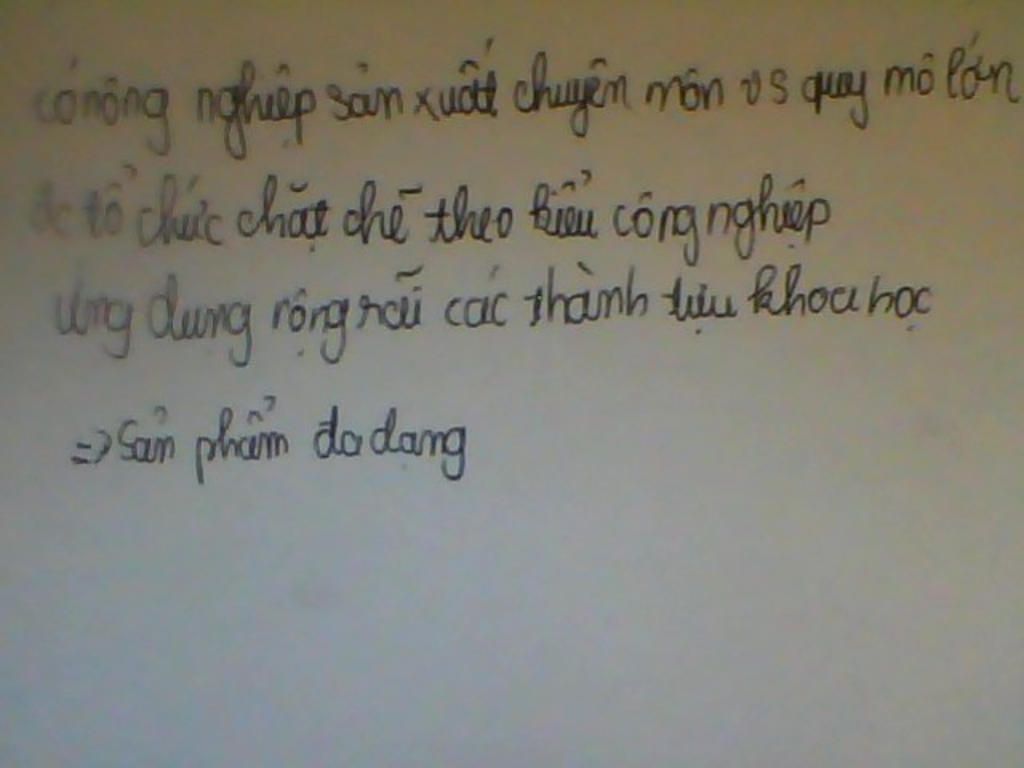 có nông nghiệp sản xuất chuyên môn vs quy mô lớn
đc tổ chức chặt chẽ theo kiểu công nghiệp
ứng dụng rộng rãi các thành tựu khoa học
=> sản phẩm đa dạng